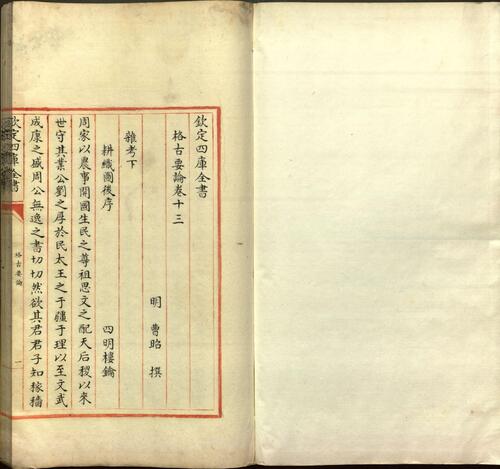 欽定四庫全書
格古要論卷十三
明 曹昭 撰
雜考下
耕織圖後序 四明樓鑰
周家以農事開國生民之尊祖思文之配天后稷以來
世守其業公劉之厚於民太王之于疆于理以至文武
成康之盛周公無逸之書切切然欲其君君子知稼穡
欽定四庫全書
格古要論
一